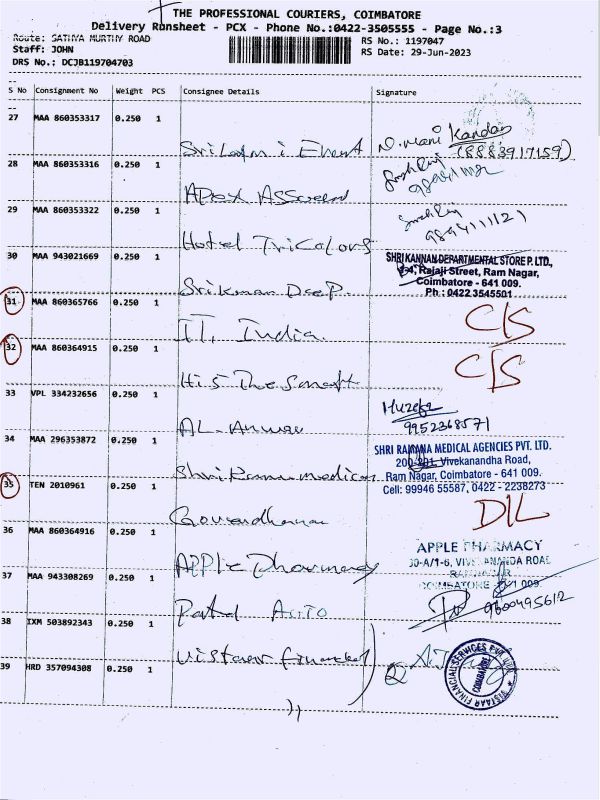 THE PROFESSIONAL COURIERS, COIMBATORE
Delivery Runsheet - PCX - Phone No.:0422-3505555 - Page No.:3
Route: SATHYA MURTHY ROAD
RS No.: 1197047
Staff: JOHN
RS Date: 29-Jun-2023
DRS No.: DCJB119704703
S No Consignment No Weight PCS Consignee Details Signature
27 MAA 860353317 0.250 1
N. Mani Kandan
(8883917159)
28 MAA 860353316 0.250 1
29 MAA 860353322 0.250 1
Hotel Tricolors
9894111121
30 MAA 943021669 0.250 1
SHRI KANNAN DEPARTMENTAL STORE P. LTD.,
Rajaji Street, Ram Nagar,
Coimbatore - 641 009.
Ph : 0422 3545501
31 MAA 860365766 0.250 1
IT, India.
C/S
32 MAA 860364915 0.250 1
C/S
33 VPL 334232656 0.250 1
AL-Anwar
Muzefa
9952368571
34 MAA 296353872 0.250 1
Shri Ramna medical
SHRI RAMANA MEDICAL AGENCIES PVT. LTD.
200-201, Vivekanandha Road,
Ram Nagar, Coimbatore - 641 009.
Cell: 99946 55587, 0422 - 2238273
35 TEN 2010961 0.250 1
D/L
36 MAA 860364916 0.250 1
Apple Pharmacy
APPLE PHARMACY
30-A/1-6, VIVEKANANDA ROAD
RAMNAGAR
COIMBATORE 641 009
37 MAA 943308269 0.250 1
Patel Auto
9600495612
38 IXM 503892343 0.250 1
Vistaar financial
VISTAAR FINANCIAL SERVICES PVT LTD
COIMBATORE
39 HRD 357094308 0.250 1